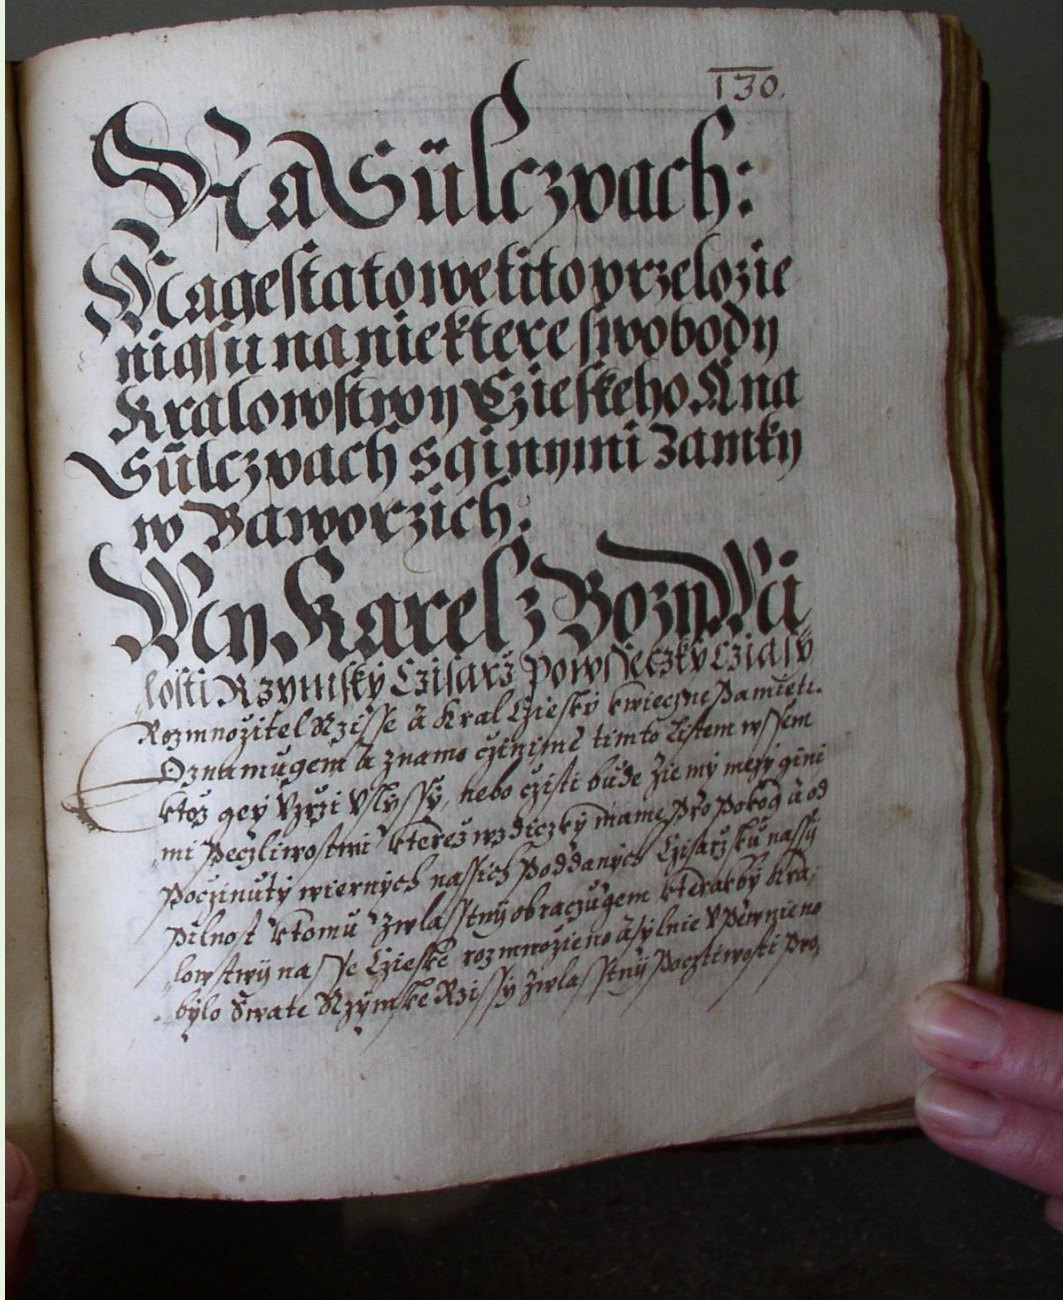 130.
Na Sülczpach:
Magestatowe tito przelozie
nigsu na niektere swobody
Kralowstwy Czieskeho A na
Sülczpach s ginymi zamky
w Baworzich:
My Karel z Bozy Mi
losti Rzymsky Czisarz powsseczky Cziasy
Rozmnozitel Rzisse a Kral Czieský kwieczne Pamieti.
Oznamugem a znamo czinime timto Listem wssem
ktoz gey Vzrzi Vslyssy, nebo czisti bude Zie my mezy gini
mi Peczliwostmi kterez wzdiczky mame Pro Pokog a od
Poczinuty wiernych nassich Poddanych Czisarzsku nassy
Pilnost ktomu Zwlasstny obraczugem kterak by Kra,
lowstwy nasse Czieske rozmnozieno a sylnie Vpewnieno
bylo Swate Rzymske Rzissy Zwlasstny Pocztiwosti Pro,